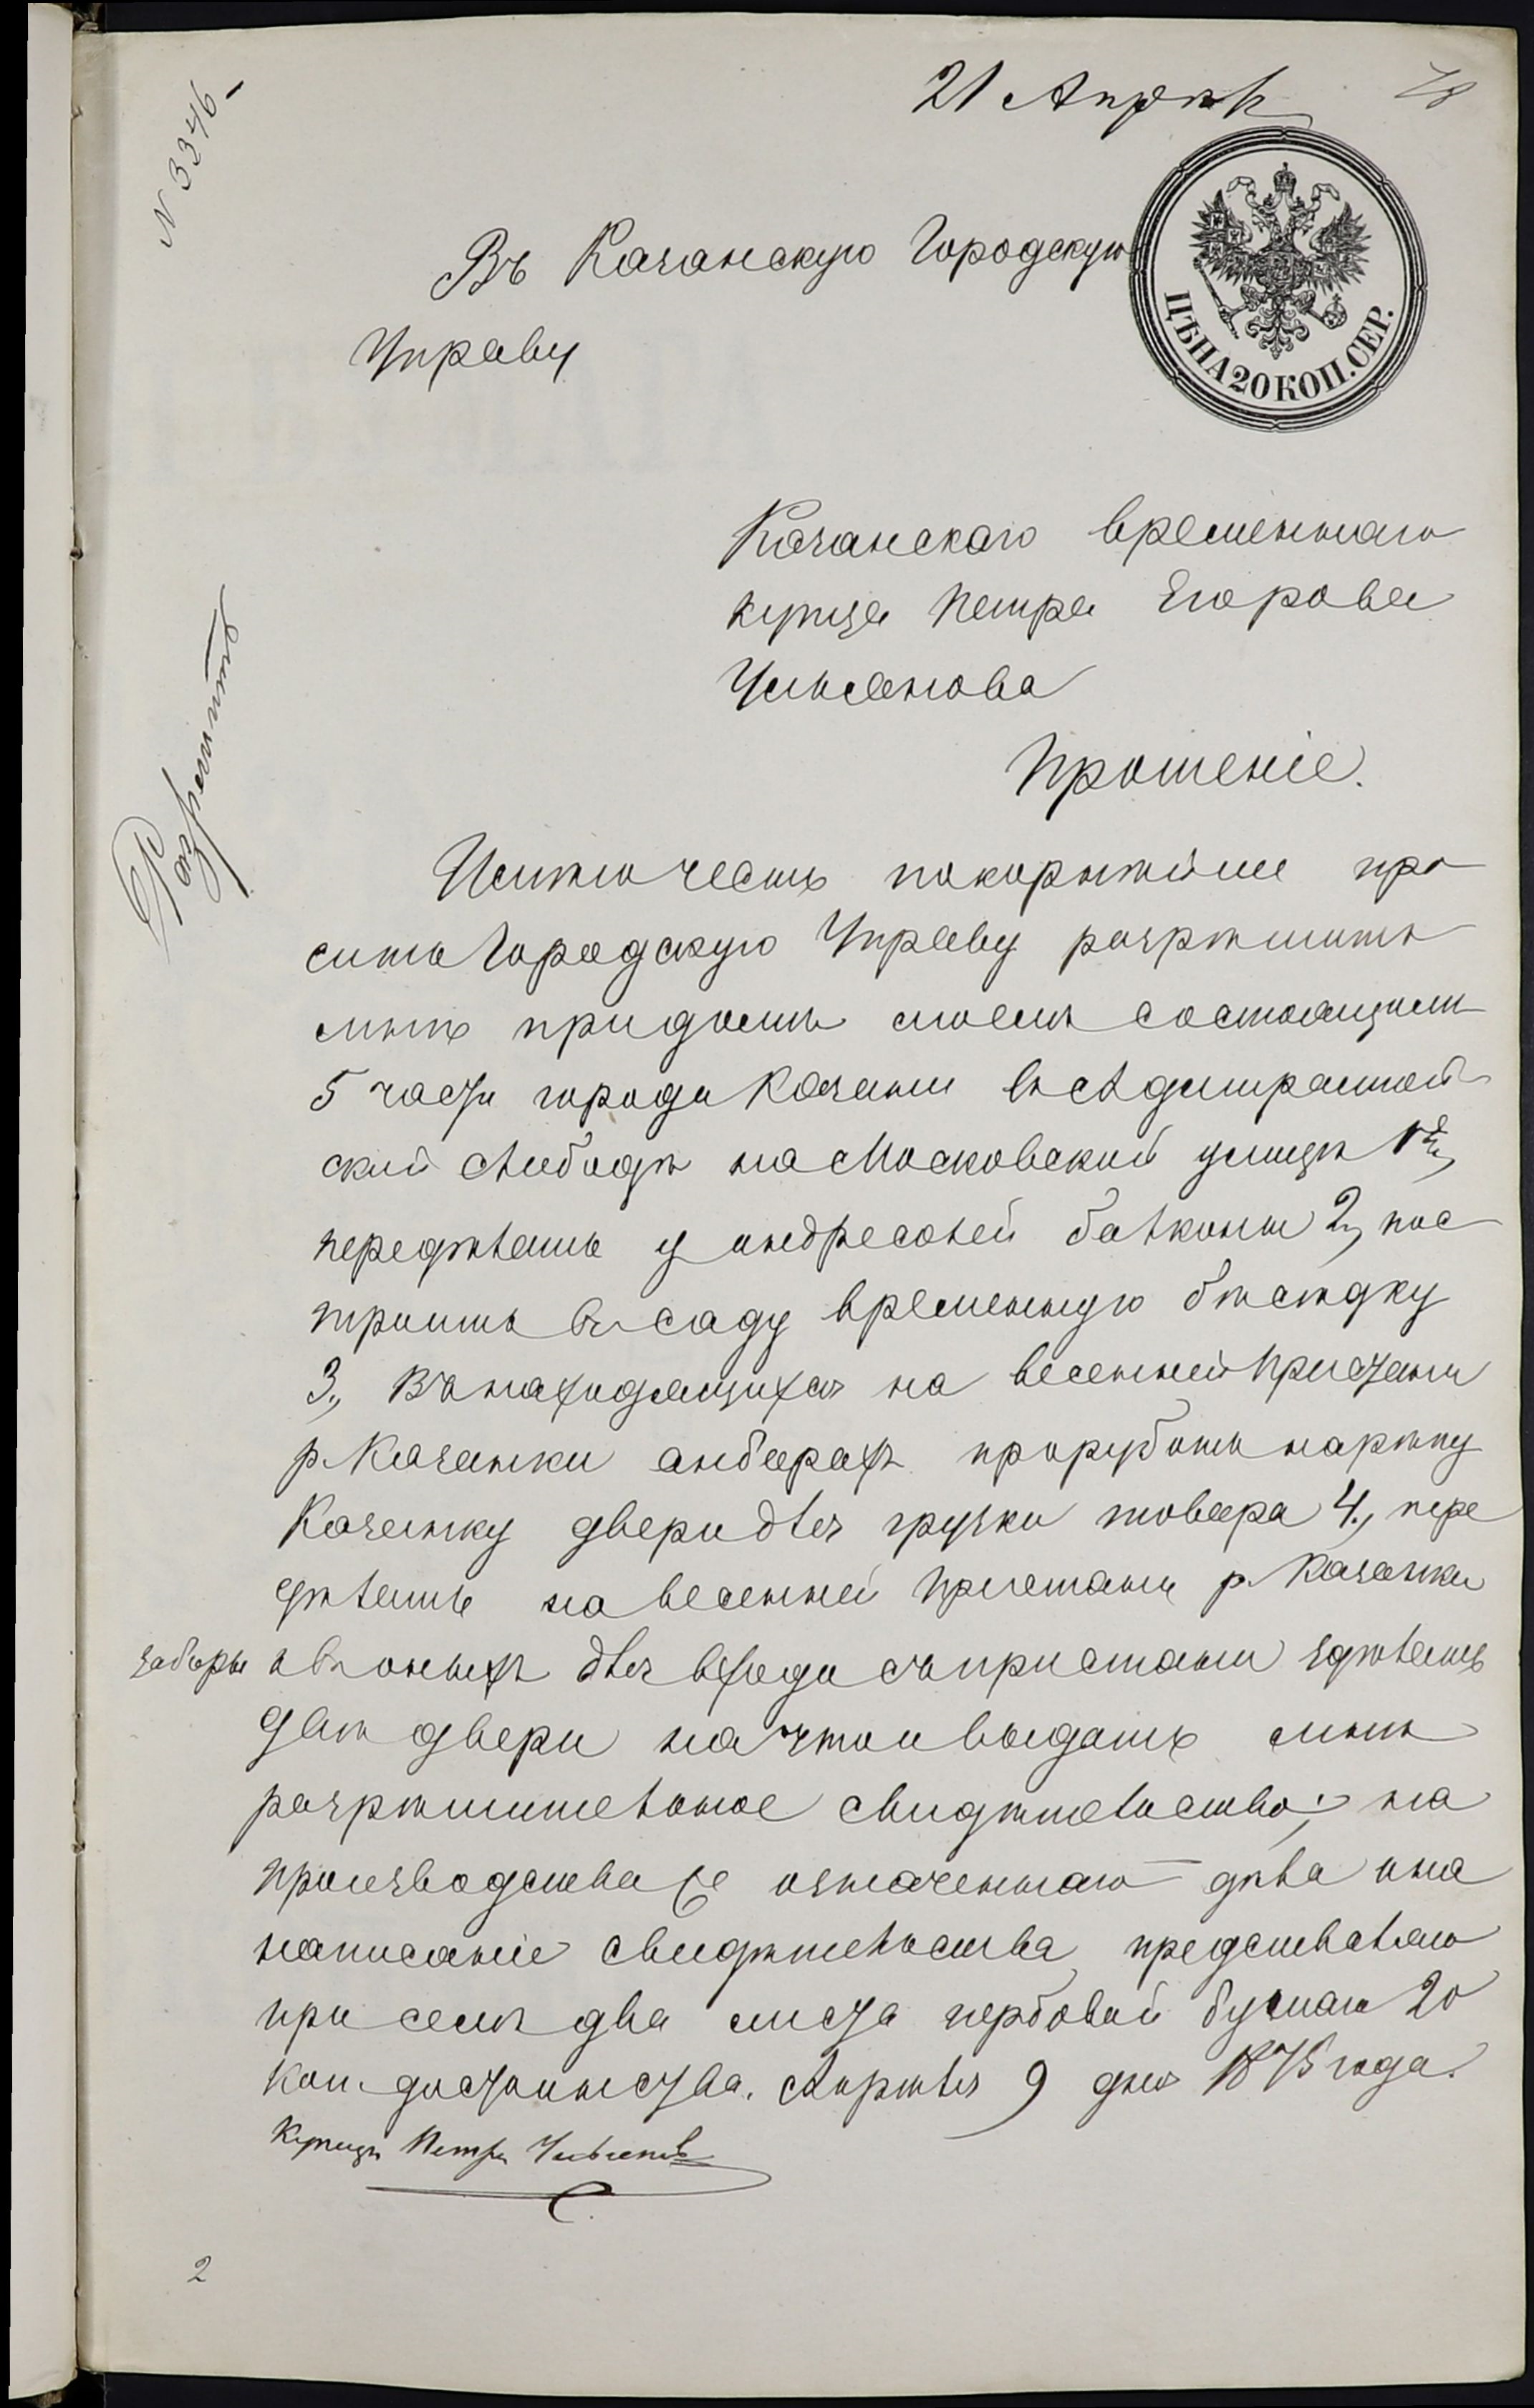 21 Апрѣля
78
N 3346
Въ Казанскую Городскую
Управу
ЦѢНА 20 КОП. СЕР.
Казанскаго временнаго
купца Петра Егорова
Прошеніе.
Разрѣшить
Имѣю честь покорнѣйше про
сить Городскую Управу разрѣшить
мнѣ при домѣ моемъ состоящемъ
5 части города Казани въ Адмиралтей
ской слободѣ на Московской улицѣ 1е,
передѣлать у андресолей балконъ 2, пос
троить въ саду временную бѣсѣдку
3., въ находящихся на весенней пристани
р. Казанки анбарахъ прорубить на рѣку
Казанку двери для грузки товара 4., пере
дѣлать на весенней пристани р. Казанки
заборы и въ оныхъ для входа съ пристани здѣлать
двѣ двери на что и выдать мнѣ
разрѣшительное свидѣтельство; на
производства же означеннаго дѣла и на
написаніе свидѣтельства представляю
при семъ два листа гербовой бумаги 20
коп. достоинства. Апрѣля 9 дня 1875 года.
Купецъ Петръ
2